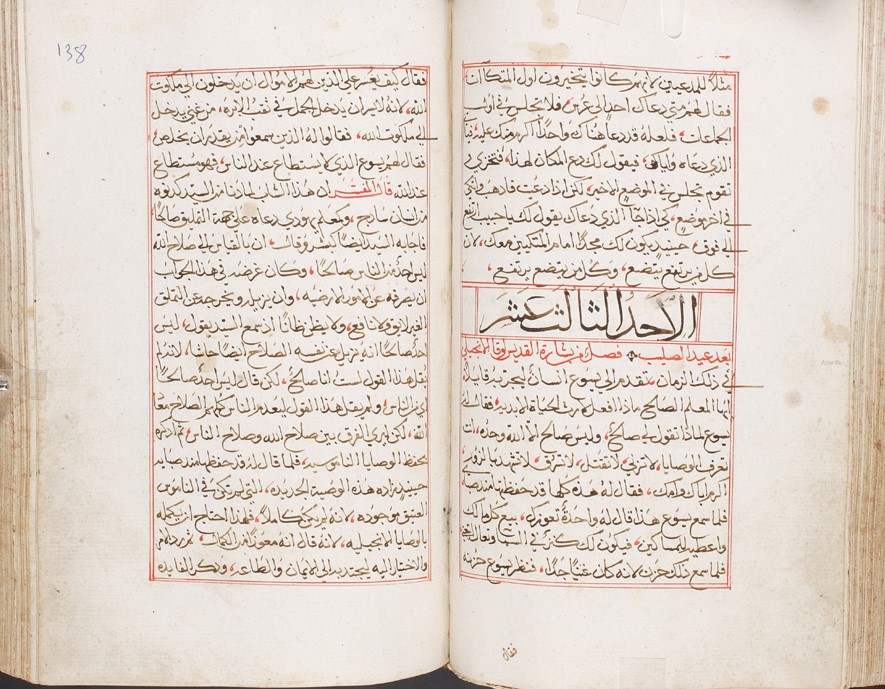 مثلاً للمدعيين لانهم كانوا يتخيرون اول المتكاات
فقال لهم متى دعاك احد الى عرس، فلا تجلس في اول
الجماعات، فلعله قد دعا هناك واحداً اكرم منك عليه، فياتي
الذي دعاه واياك، فيقول لك دع المكان لهذا، فتخزى
تقوم تجلس في الموضع الاخير، لكن اذا دعيت فاذهب واتكي
في اخر موضع، لكي اذا جآ الذي دعاك يقول لك يا حبيب ارتفع
الى فوق، حينيذ يكون لك مجداً امام المتكيين معك، لان
كل من يرتفع يتضع، وكل من يتضع يرتفع،
الاحد الثالث عشر
بعد عيد الصليب، فصل من بشارة القديس لوقا الانجيلي
في ذلك الزمان، تقدم الى يسوع انسان يجربه قايلاً
ايها المعلم الصالح ماذا افعل لارث الحياة الابدية، فقال له
يسوع لماذا تقول لي صالح، وليس صالح الا الله وحده، انت
تعرف الوصايا، لا تزني، لا تقتل، لا تسرق، لا تشهد بالزور،
اكرم اباك وامك، فقال له هذه كلها قد حفظتها منذ صباي
فلما سمع يسوع هذا قال له واحدة تعوزك، بيع كلما لك
واعطيه للمساكين، فيكون لك كنز في السما وتعال اتبعني
فلما سمع ذلك حزن لانه كان غنياً جداً، فنظر يسوع حزنه
فقال
138
فقال كيف يعسر على الذين لهم الاموال ان يدخلون الى ملكوت
الله، لانه لايسر ان يدخل الجمل في ثقب الابره، من غني يدخل
الى ملكوت الله، فقالوا له الذين سمعوا من يقدر ان يخلص،
فقال لهم يسوع الذي لا يستطاع عند الناس، فهو مستطاع
عند الله قال المفسر ان هذا الشاب لما دنا من السيد كدنوه
من انسان سادج، ومعلم يهودي دعاه على جهة التملق صالحاً
فاجابه السيد ايضاً كبشر وقال، ان بالقياس الى صلاح الله
ليس احد من الناس صالحاً، وكان غرضه في هذا الجواب
ان يصرفه عن الامور الارضيه، وان يزيل ويخرجه عن التملق
الغير لايق ولا نافع، ولا يظن ظاناً اذ سمع السيد يقول، ليس
احد صالحاً انه نزيل عن نفسه الصلاح ايضاً حاشا، لانه لم
يقل هذا القول لست انا صالح، لكن قال ليس احد صالحاً
اي من الناس، ولم يقل هذا القول ليعدم الناس كلهم الصلاح معاً
الله، لكن ليري الفرق بين صلاح الله وصلاح الناس، ثم اذكره
بحفظ الوصايا الناموسيه، فلما قال له قد حفظتها منذ صباي
حينيذ زاده هذه الوصية الجديده، التي لم تكن في الناموس
العتيق موجوده، لانه لم يكن كاملاً، فلهذا احتاج ان يكمله
بالوصايا الانجيليه، لانه قال انه معوزاً من الكمال،
والاختيار اليه ليجتذبه الى الايمان والطاعه، وذكر الفايده